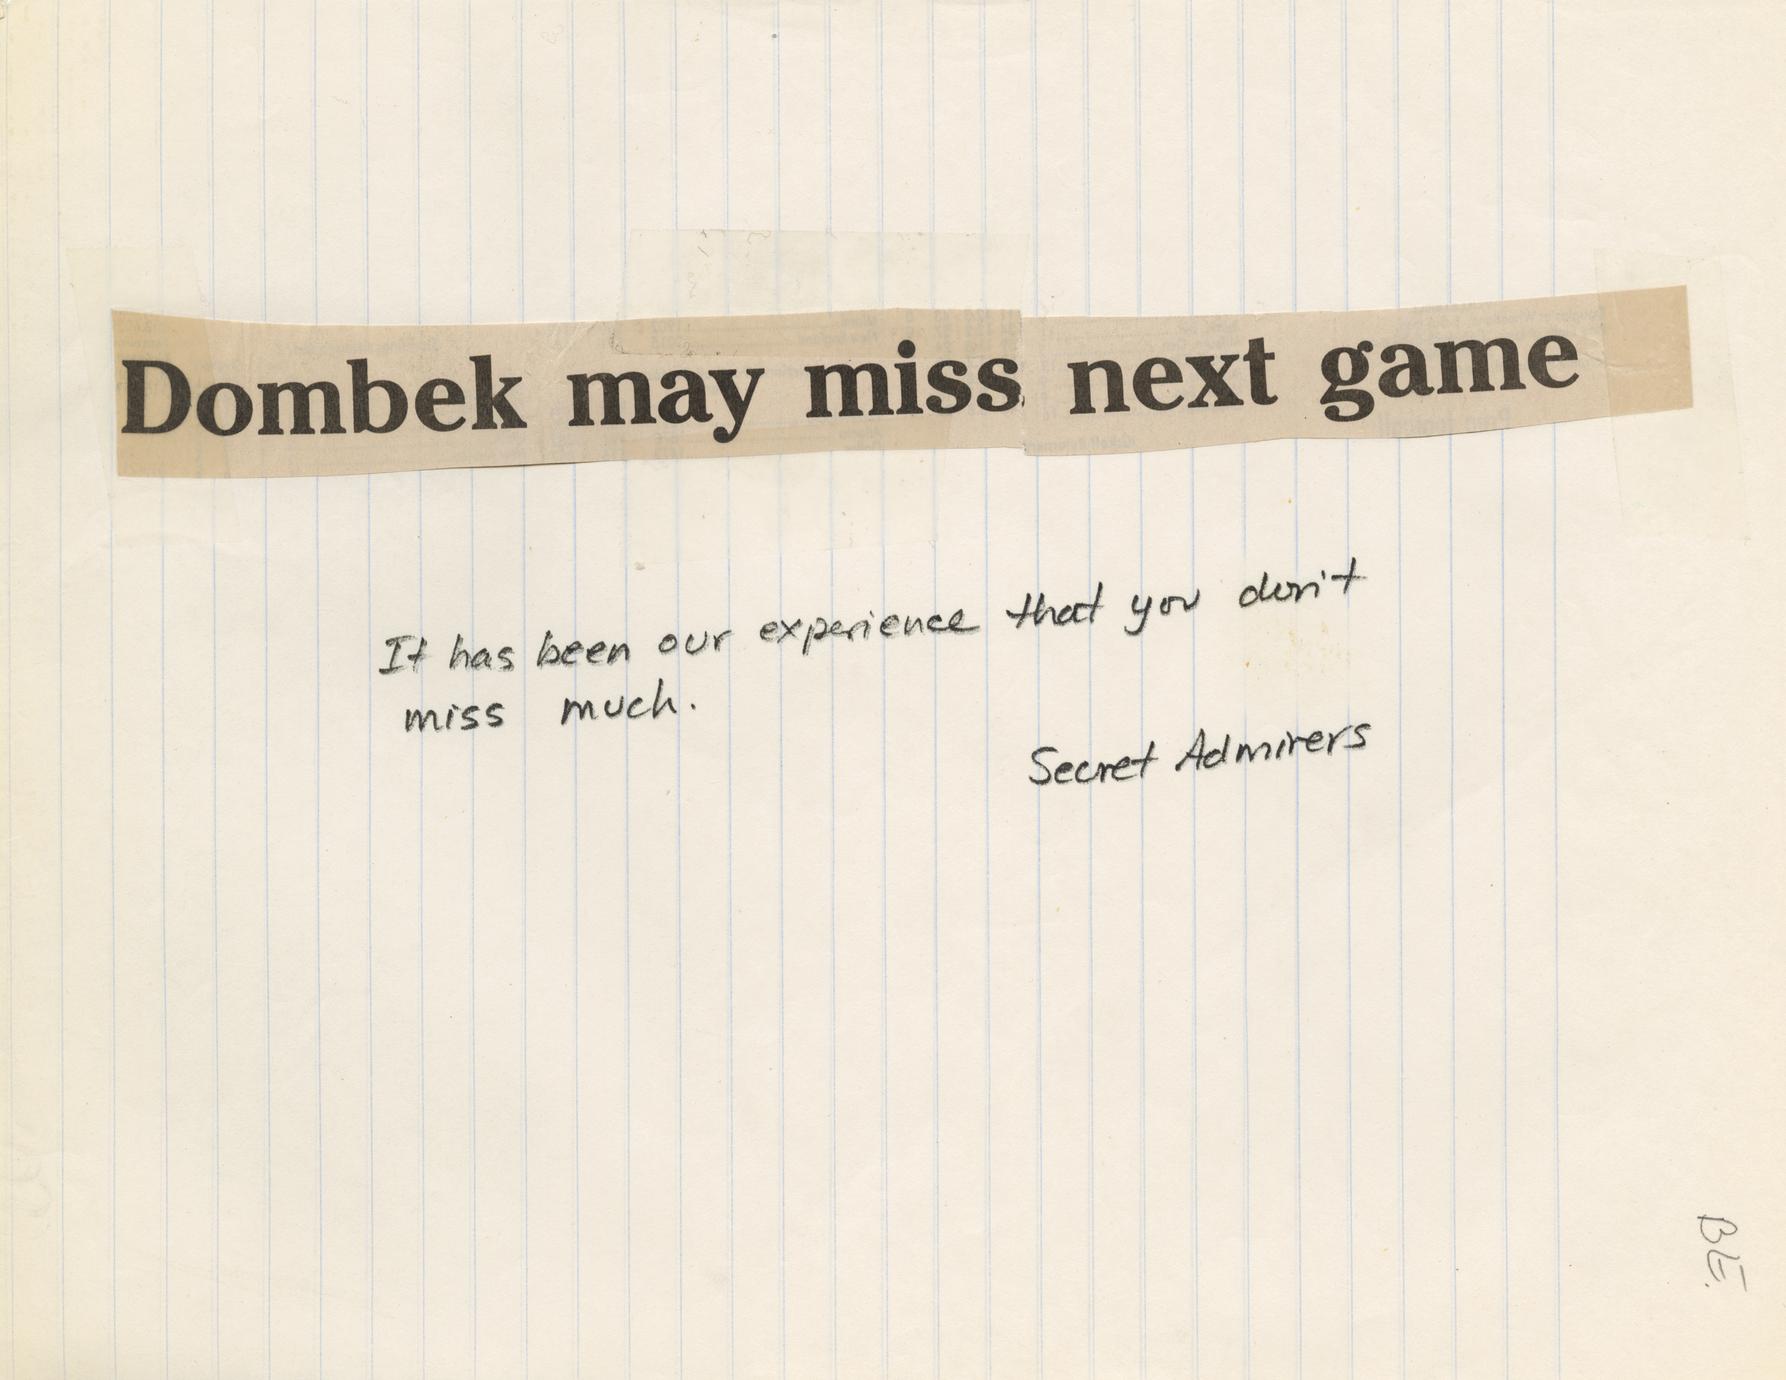 Dombek may miss next game
It has been our experience that you don't
miss much.
Secret Admirers
BE.